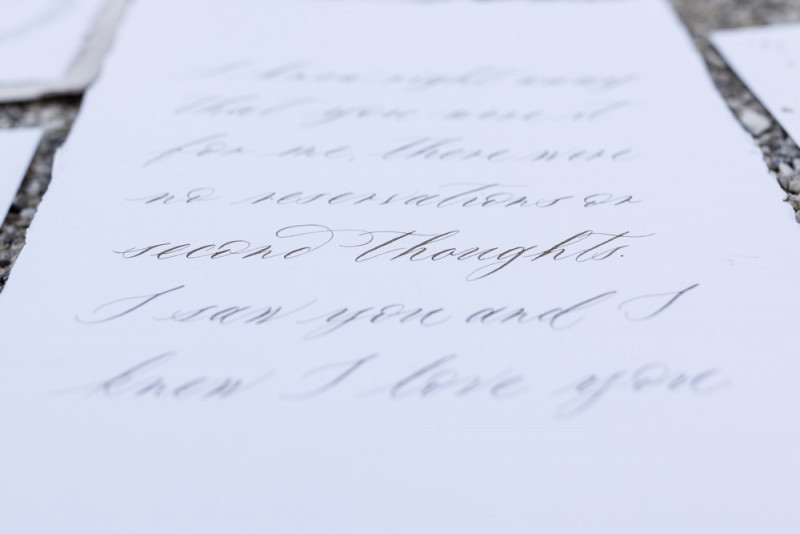 I knew right away
that you were it
for me, there were
no reservations or
second thoughts.
I saw you and I
knew I love you